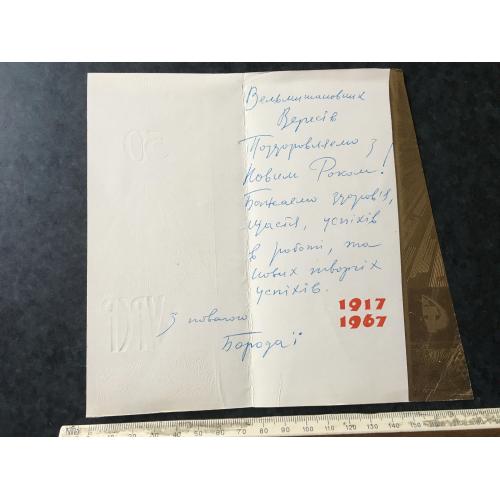 Вельмишановних
Вересів
Поздоровляємо з
Новим Роком!
Бажаємо здоров'я,
щастя, успіхів
в роботі, та
нових творчих
успіхів.
1917
1967
З повагою
Бородаї
50
УРСР
10 20 30 40 50 60 70 80 90 100 110 120 130 140 150